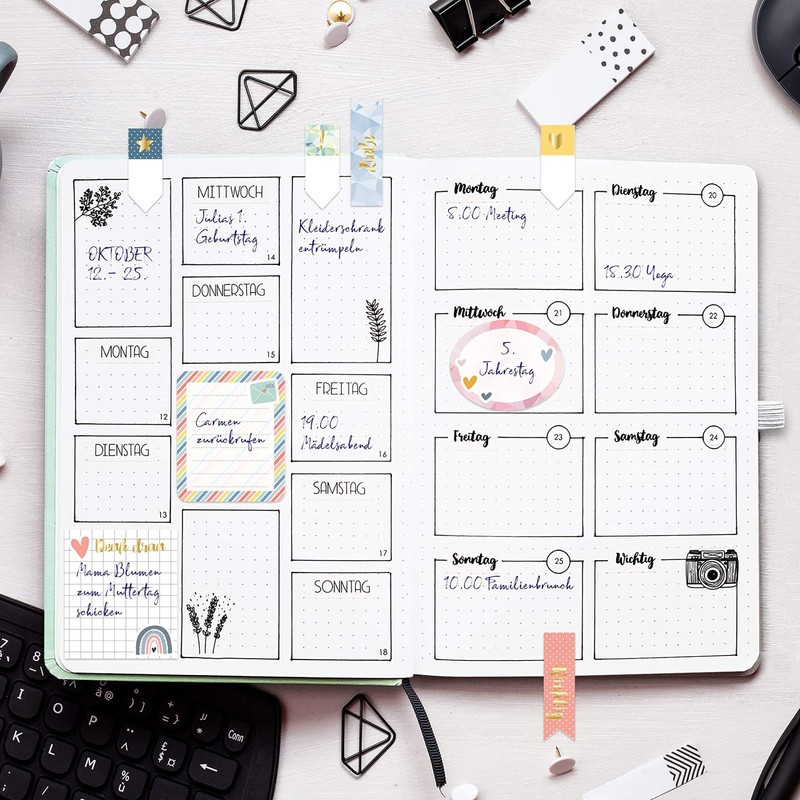 OKTOBER
12.- 25.
MONTAG
12
DIENSTAG
13
Denk dran
Mama Blumen
zum Muttertag
schicken
MITTWOCH
Julias 1.
Geburtstag
14
DONNERSTAG
15
Carmen
zurückrufen
!
Kleiderschrank
entrümpeln
FREITAG
19.00
Mädelsabend
16
SAMSTAG
17
SONNTAG
18
Montag
8.00 Meeting
Dienstag 20
18.30 Yoga
Mittwoch 21
5.
Jahrestag
Donnerstag 22
Freitag 23
Samstag 24
Sonntag 25
10.00 Familienbrunch
Wichtig
I O P
K L
M
Conn